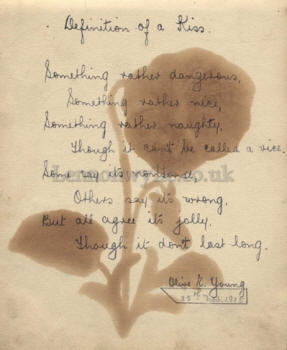 Definition of a Kiss.
Something rather dangerous,
Something rather nice,
Something rather naughty,
Though it can't be called a vice.
Some say its nonsense,
Others say it's wrong,
But all agree it's jolly,
Though it don't last long.
Olive K. Young
25th